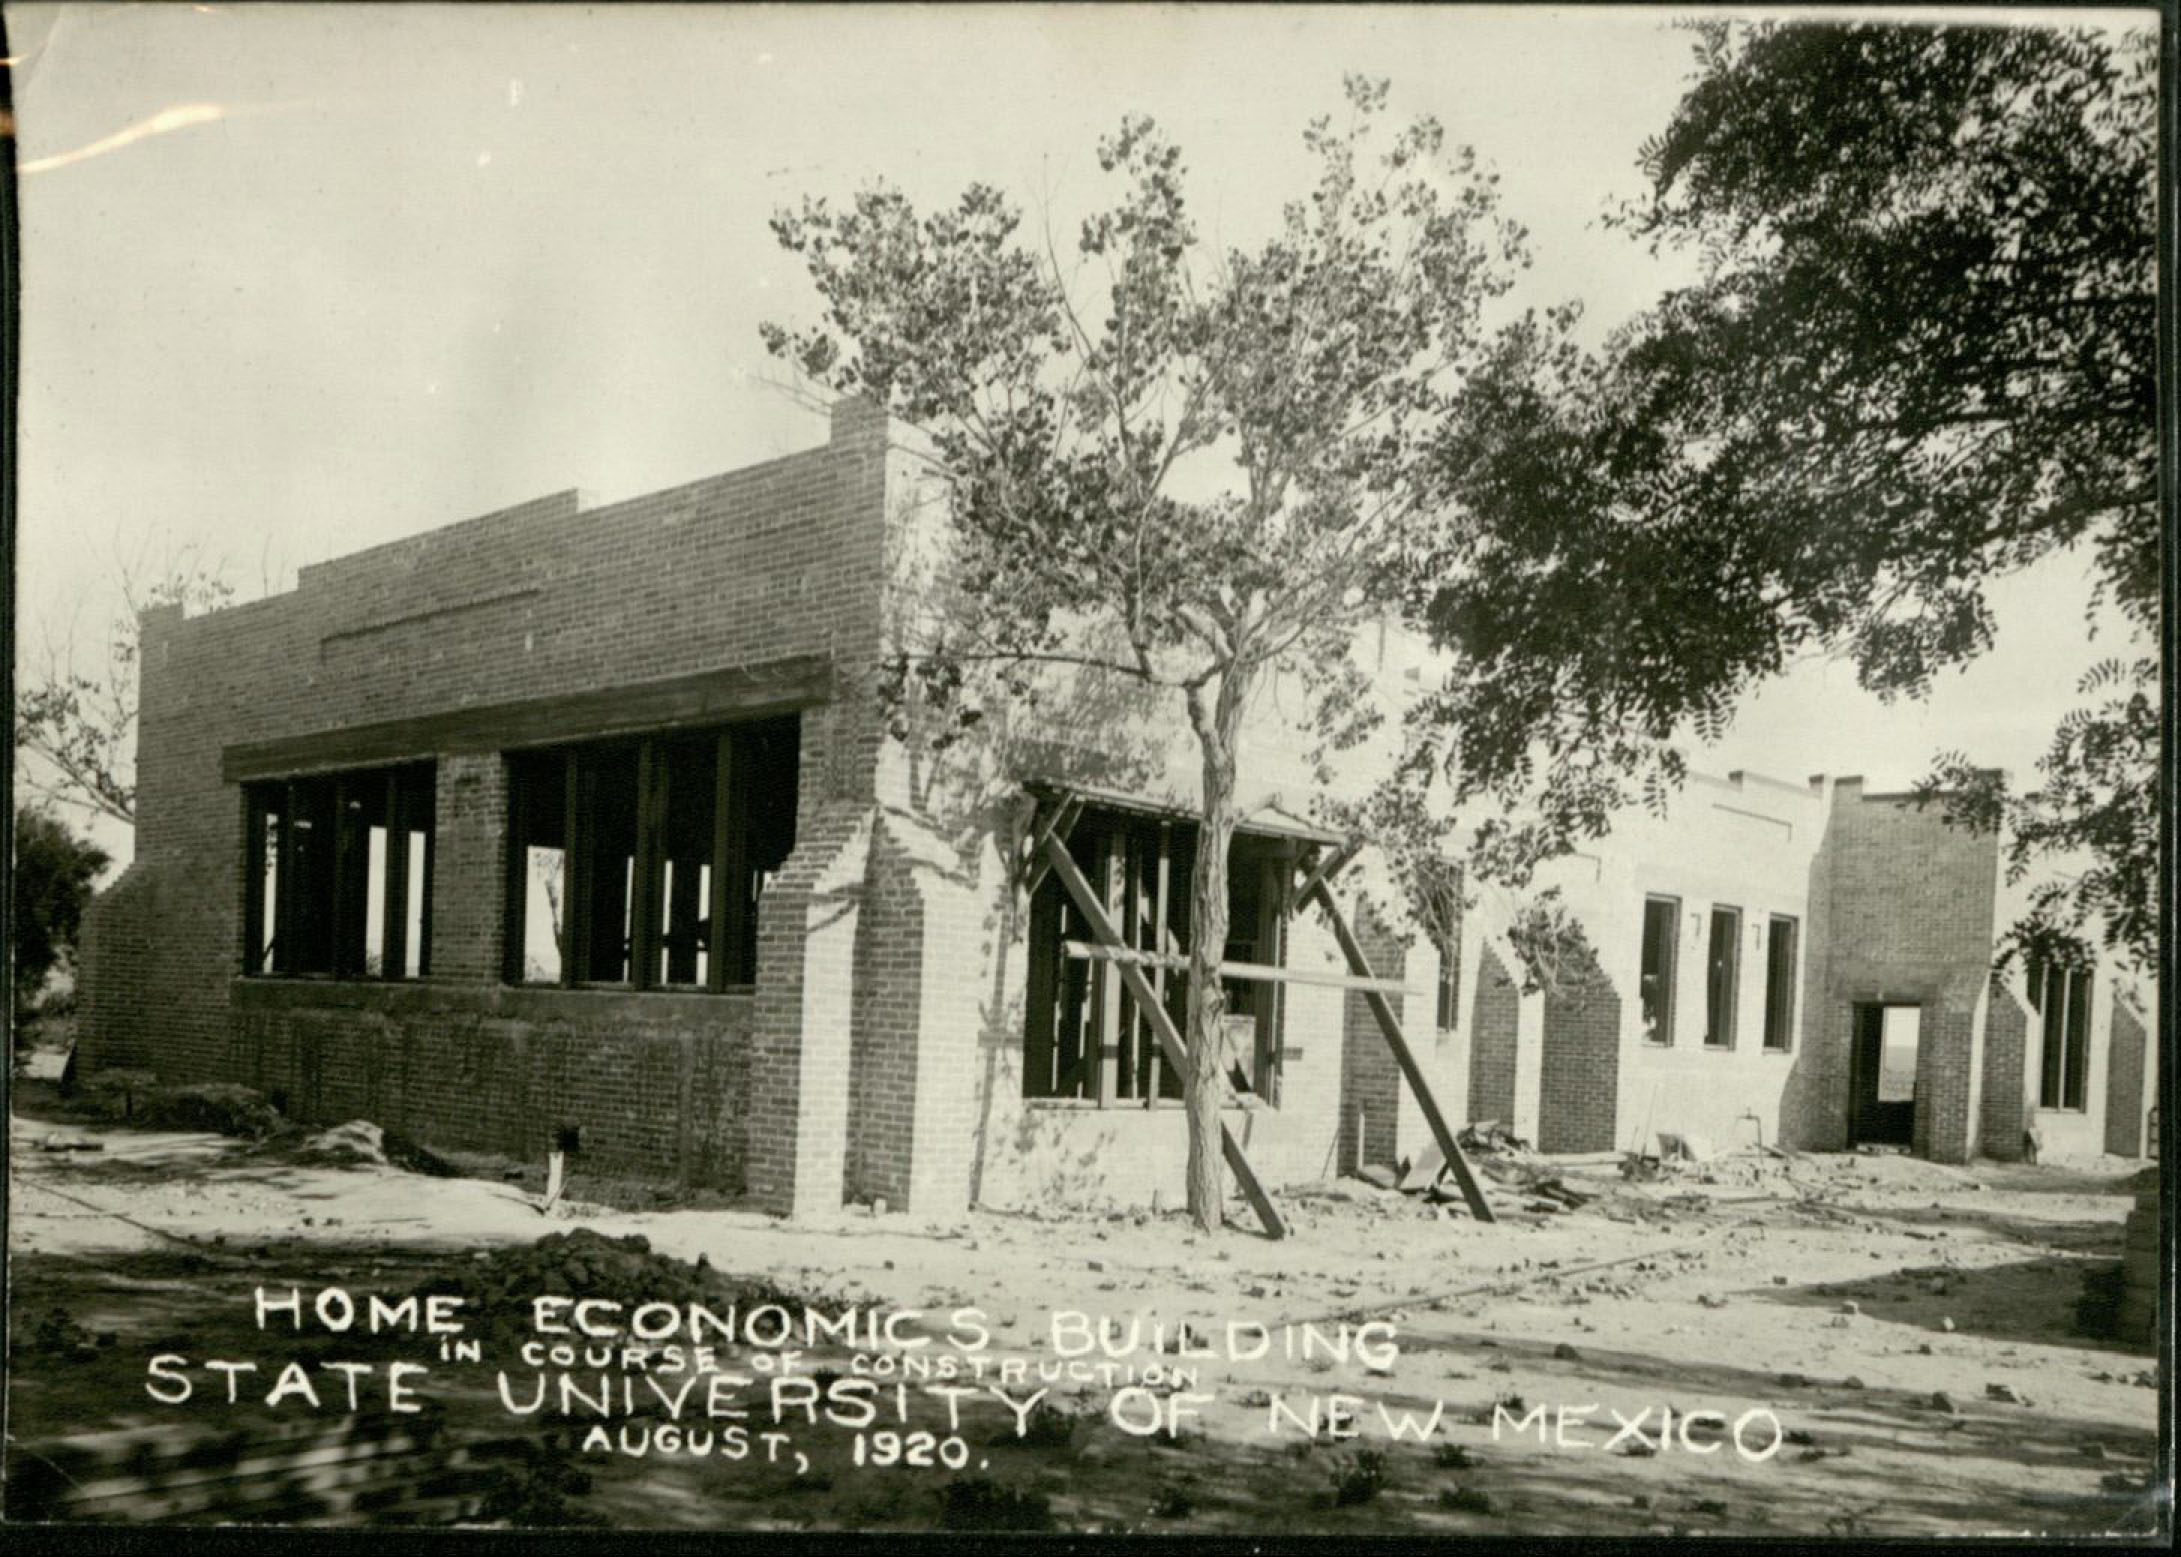 HOME ECONOMICS BUILDING
IN COURSE OF CONSTRUCTION
STATE UNIVERSITY OF NEW MEXICO
AUGUST, 1920.